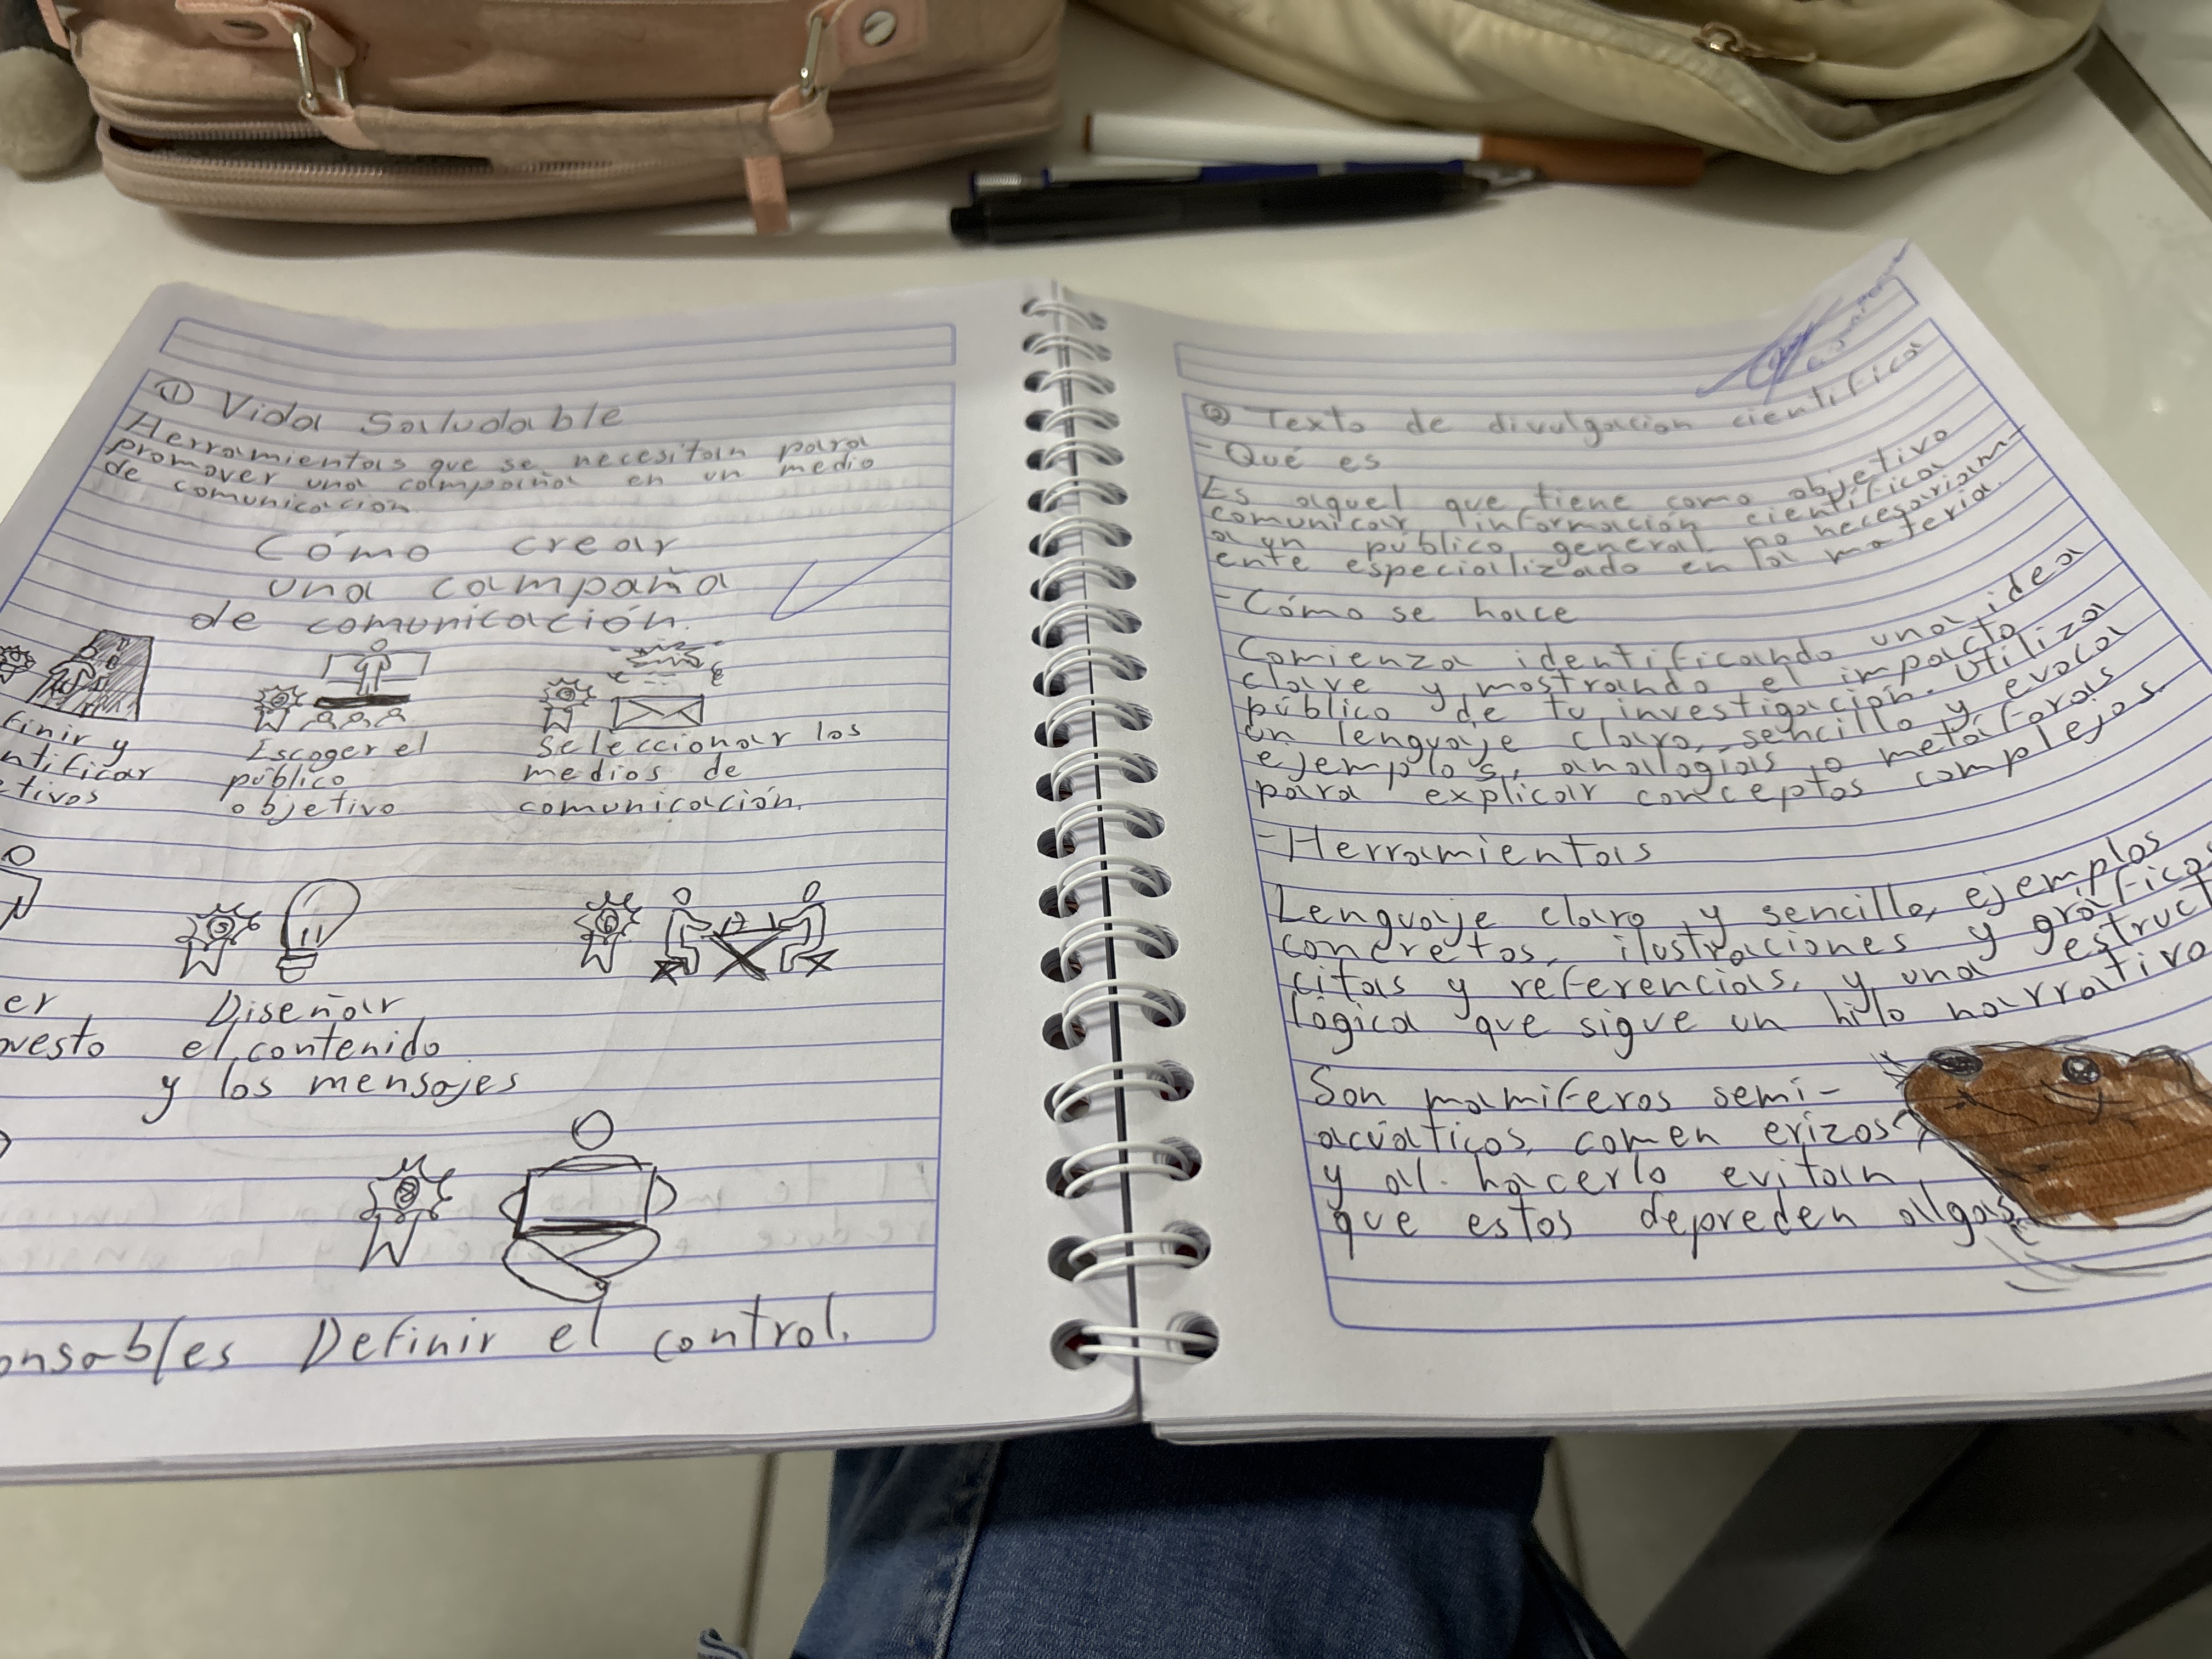 ① Vida Saludable
Herramientas que se necesitan para
promover una campaña en un medio
de comunicación.
Cómo crear
una campaña
de comunicación.
finir y
ntificar
etivos
Escoger el
público
objetivo
Seleccionar los
medios de
comunicación.
er
uesto
Diseñar
el contenido
y los mensajes
onsables Definir el control.
② Texto de divulgacion cientifica
- Qué es
Es aquel que tiene como objetivo
comunicar información científica
a un público general no necesariam-
ente especializado en la materia.
- Cómo se hace
Comienza identificando una idea
clave y mostrando el impacto
público de tu investigación. Utiliza
un lenguaje claro, sencillo y evoca
ejemplos, analogías o metáforas
para explicar conceptos complejos.
- Herramientas
Lenguaje claro y sencillo, ejemplos
concretos, ilustraciones y gráficos
citas y referencias, y una estruct
lógica que sigue un hilo narrativo
Son mamiferos semi-
acúaticos, comen erizos
y al hacerlo evitan
que estos depreden algas